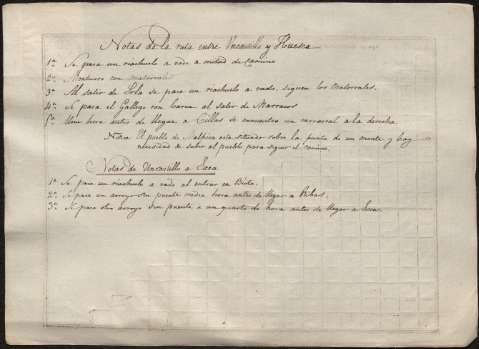 Notas de la ruta entre Uncastillo y Huesca
1ª Se pasa un riachuelo a vado a mitad de camino
2ª con matorrales
3ª Al salir de Sola se pasa un riachuelo a vado, siguen los matorrales.
4ª Se pasa el Gallego con barca al salir de Marracos
5ª Una hora antes de llegar a Cuillas se encuentra un carrascal a la derecha
Nota. El pueblo de Malpica esta situado sobre la punta de un monte y hay
necesidad de subir al pueblo para seguir el camino.
Notas de Uncastillo a Jaca
1ª Se pasa un riachuelo a vado al entrar en Biota.
2ª Se pasa un arroyo sin puente media hora antes de llegar a
3ª Se pasa otro arroyo sin puente a un quarto de hora antes de llegar a Jaca.